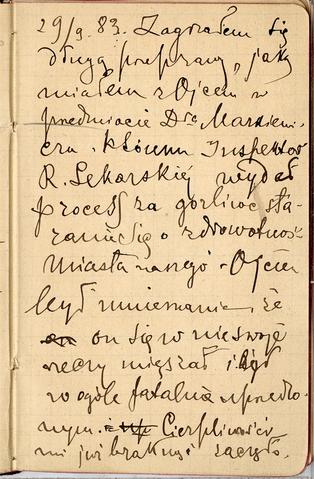 29/9. 83. Zagrzałem się
długą przeprawą, jaką
miałem z Ojcem w
przedmiocie Dra Markiewi-
cza. któremu Inspektor
R. Lekarskiej wydał
process za gorliwe sta-
ranie się o zdrowotność
miasta naszego - Ojciec
był mniemania, że
on się w nieswoje
rzeczy mięszał i był
w ogóle fatalnie uprzedzo-
nym. Cierpliwości
mi już braknąć zaczęło.